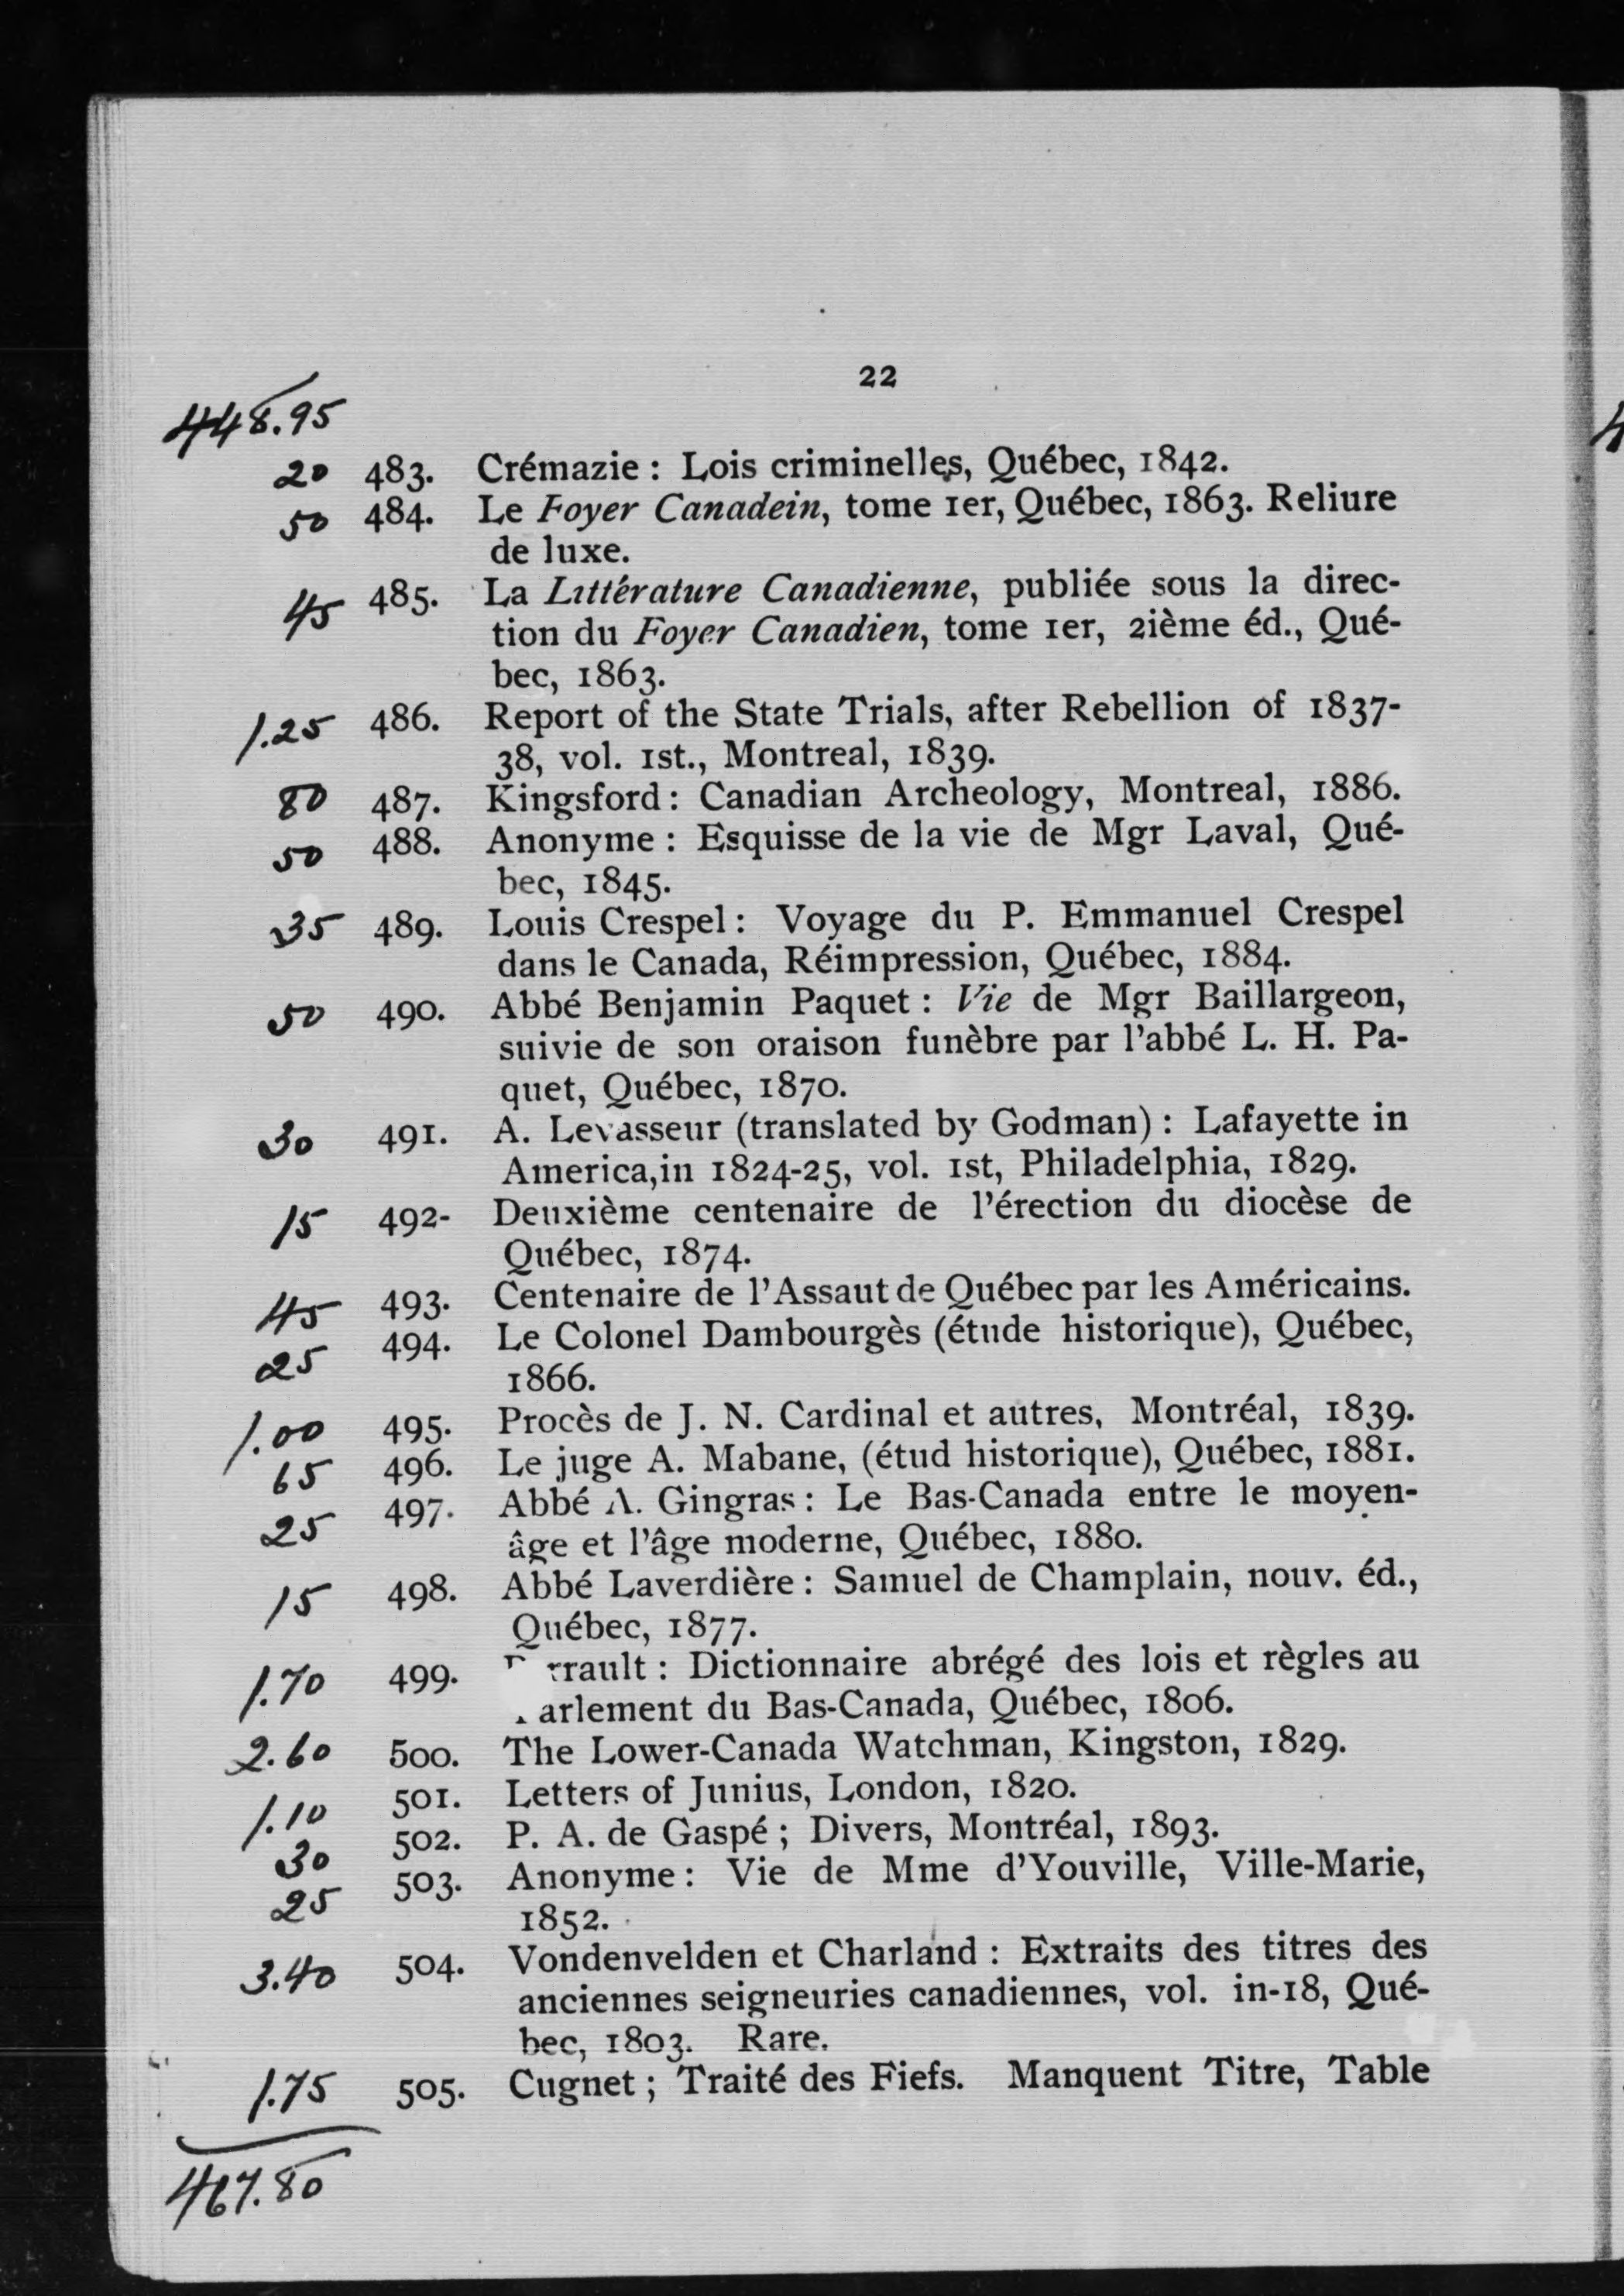 22
448.95
20 483. Crémazie : Lois criminelles, Québec, 1842.
50 484. Le Foyer Canadein, tome 1er, Québec, 1863. Reliure
de luxe.
45 485. La Littérature Canadienne, publiée sous la direc-
tion du Foyer Canadien, tome 1er, 2ième éd., Qué-
bec, 1863.
1.25 486. Report of the State Trials, after Rebellion of 1837-
38, vol. 1st., Montreal, 1839.
80 487. Kingsford : Canadian Archeology, Montreal, 1886.
50 488. Anonyme : Esquisse de la vie de Mgr Laval, Qué-
bec, 1845.
35 489. Louis Crespel : Voyage du P. Emmanuel Crespel
dans le Canada, Réimpression, Québec, 1884.
50 490. Abbé Benjamin Paquet : Vie de Mgr Baillargeon,
suivie de son oraison funèbre par l'abbé L. H. Pa-
quet, Québec, 1870.
30 491. A. Levasseur (translated by Godman) : Lafayette in
America,in 1824-25, vol. 1st, Philadelphia, 1829.
15 492- Deuxième centenaire de l'érection du diocèse de
Québec, 1874.
45 493. Centenaire de l'Assaut de Québec par les Américains.
25 494. Le Colonel Dambourgès (étude historique), Québec,
1866.
1.00 495. Procès de J. N. Cardinal et autres, Montréal, 1839.
65 496. Le juge A. Mabane, (étud historique), Québec, 1881.
25 497. Abbé A. Gingras : Le Bas-Canada entre le moyen-
âge et l'âge moderne, Québec, 1880.
15 498. Abbé Laverdière : Samuel de Champlain, nouv. éd.,
Québec, 1877.
1.70 499. rrault : Dictionnaire abrégé des lois et règles au
arlement du Bas-Canada, Québec, 1806.
2.60 500. The Lower-Canada Watchman, Kingston, 1829.
1.10 501. Letters of Junius, London, 1820.
30 502. P. A. de Gaspé ; Divers, Montréal, 1893.
25 503. Anonyme : Vie de Mme d'Youville, Ville-Marie,
1852.
3.40 504. Vondenvelden et Charland : Extraits des titres des
anciennes seigneuries canadiennes, vol. in-18, Qué-
bec, 1803. Rare.
1.75 505. Cugnet ; Traité des Fiefs. Manquent Titre, Table
467.80